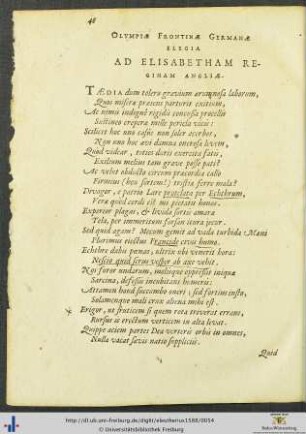 48
OLYMPIÆ FRONTINÆ GERMANÆ
ELEGIA
AD ELISABETHAM RE-
GINAM ANGLIÆ.
TÆDIA dum tolero gravium ærumnosa laborum,
Quos misera præceps parturit exitium,
Ac nimis indigne rigidis concussa procellis
Sustineo crepera mille pericla viæ:
Scilicet hoc uno casus non solor acerbos,
Non hoc uno avi damna onerosa levem,
Quod videar, vates duris exercita fatis,
Exilium melius tam grave posse pati?
At velut obducto circum præcordia callo
Firmius (heu sortem!) tristia ferre mala?
Divagor, e patrio Lare per
Vera quod cordi est mi pietatis honos.
Experior plagas, & livida sortis amara
Tela, per immeritum sorsan itura jecur.
Sed quid agam? Mecum gemit ad vada turbida Mœni
Pharimus eiectus humo.
dabis pœnas, ultrix ubi venerit hora:
Nescio quid ab axe vehit.
Nos furor undarum, molisque oppressit iniquæ
Sarcina, defessis incubitans humeris:
Attamen haud succumbo oneri; sed fortius insto,
Solamenque mali crux aliena mihi est.
Erigor, ut fruticem si quem rota treverat errans,
Rursus is erectum verticem in alta levat.
Quippe aciem partes Dea verteris orbis in omnes,
Nulla vacat sævis natio suppliciis.
Quid
http://dl.ub.uni-freiburg.de/diglit/ebschertus1588/0054
© Universitätsbibliothek Freiburg
Baden-Württemberg